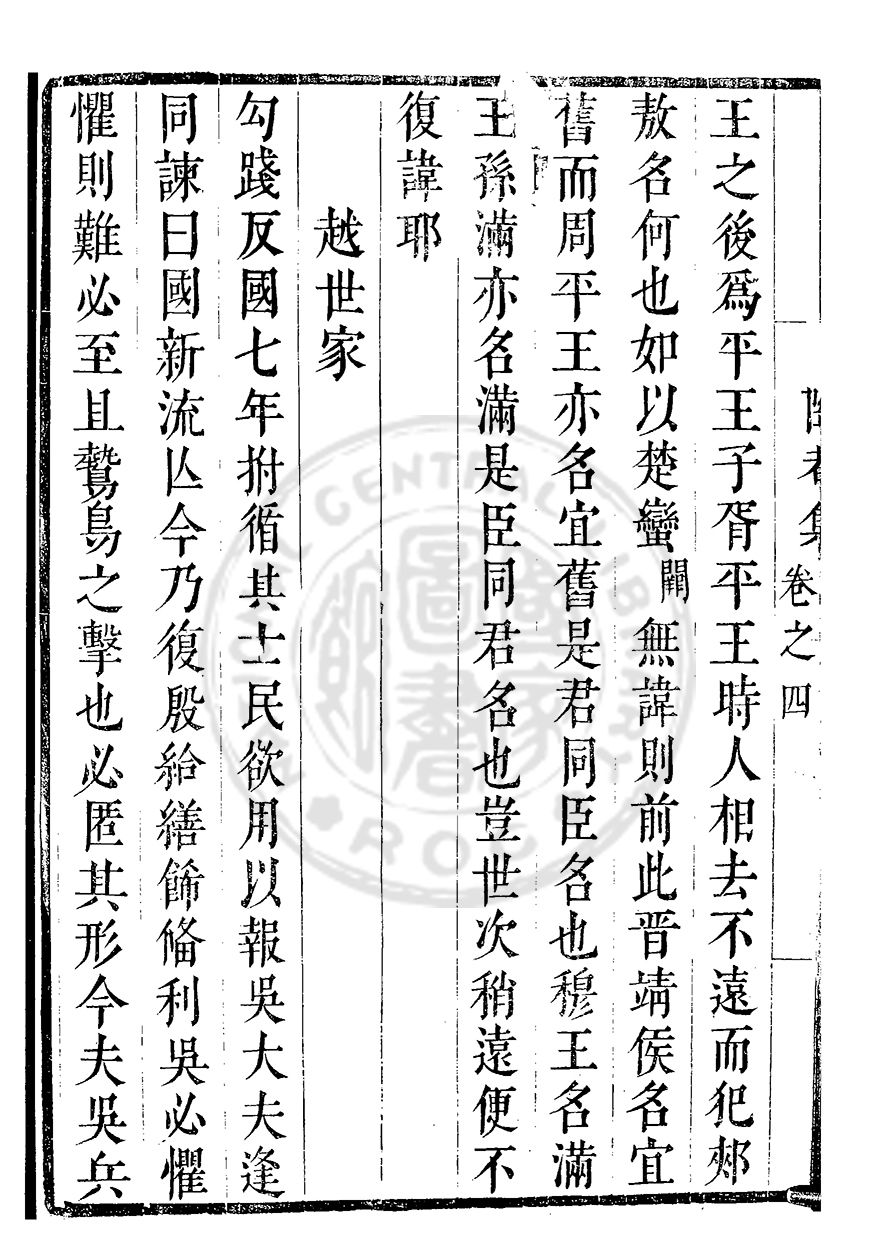 集 卷之四
王之後爲平王子胥平王時人相去不遠而犯郟
敖名何也如以楚蠻闕無諱則前此晋靖侯名宜
舊而周平王亦名宜舊是君同臣名也穆王名滿
王孫滿亦名滿是臣同君名也豈世次稍遠便不
復諱耶
越世家
勾踐反國七年拊循其士民欲用以報吳大夫逢
同諫曰國新流亾今乃復殷給繕餙俻利吳必懼
懼則難必至且鷙鳥之擊也必匿其形今夫吳兵
CENTRAL LIBRARY
R.O.C.